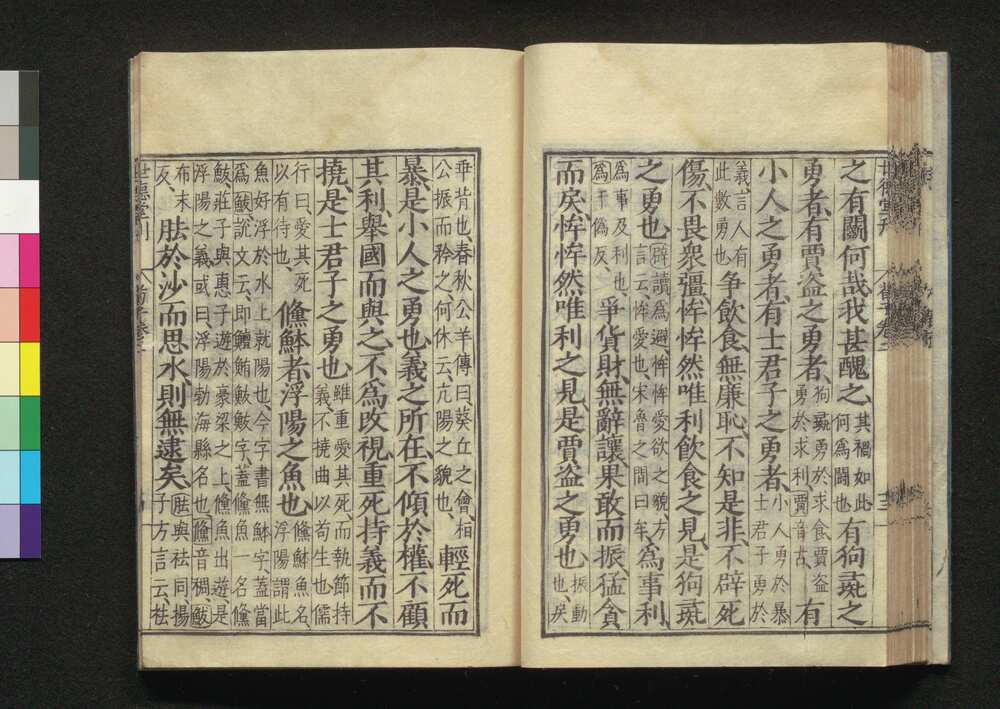 之有鬭何哉我甚醜之其禍如此何爲鬭也有狗彘之
勇者有賈盗之勇者狗彘勇於求食賈盗勇於求利賈音古有
小人之勇者有士君子之勇者小人勇於暴士君子勇於
義言人有此數勇也爭飲食無廉恥不知是非不辟死
傷不畏衆彊恈恈然唯利飲食之見是狗彘
之勇也辟讀爲避恈恈愛欲之貌方言云恈愛也宋魯之間曰牟爲事利
爲事及利也爲于僞反爭貨財無辭讓果敢而振猛貪
而戾恈恈然唯利之見是賈盗之勇也振動也戾
乖背也春秋公羊傳曰葵丘之會桓公振而矜之何休云亢陽之貌也輕死而
暴是小人之勇也義之所在不傾於權不顧
其利舉國而與之不爲改視重死持義而不
撓是士君子之勇也雖重愛其死而執節持義不撓曲以苟生也儒
行曰愛其死以有待也鯈䱁者浮陽之魚也鯈䱁魚名浮陽謂此
魚好浮於水上就陽也今字書無䱁字蓋當爲鮁說文云即鱣鮪鮁鮁字蓋鯈魚一名鯈
鮁莊子與惠子遊於豪梁之上鯈魚出遊是浮陽之義或曰浮陽勃海縣名也鯈音稠鮁
布末反胠於沙而思水則無逮矣胠與袪同揚子方言云袪
世德堂刊